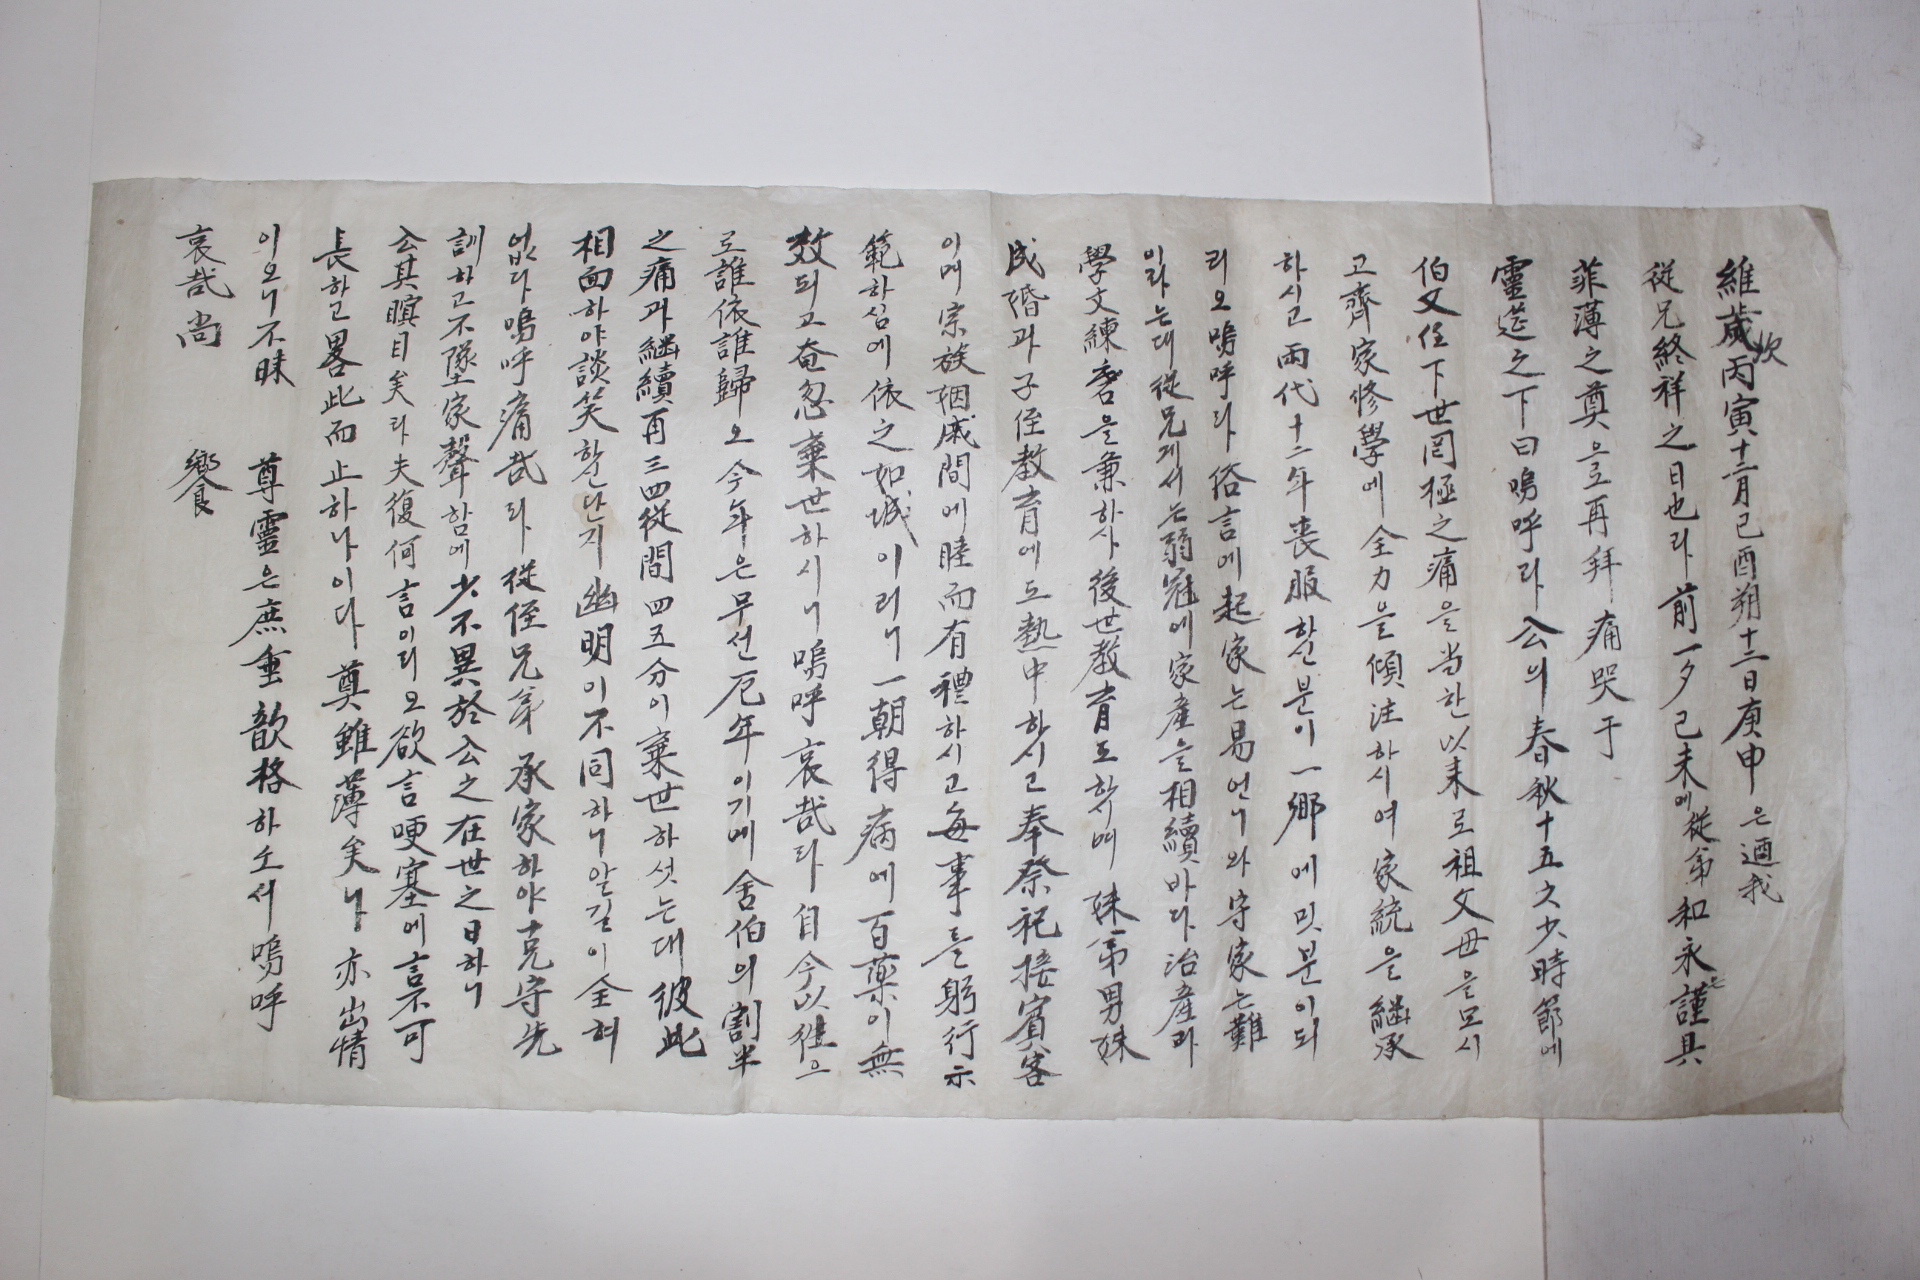 維歲次丙寅十二月己酉朔十二日庚申은迺我
從兄終祥之日也라前一夕己未에從弟和永은謹具
菲薄之奠으로再拜痛哭于
靈筵之下曰嗚呼라公의春秋十五六少時節에
伯父任下世罔極之痛을當한以來로祖父母을모시
고齊家修學에全力을傾注하시여家統을繼承
하시고兩代十二年喪服한분이一鄕에몃분이되
리오嗚呼라俗言에起家는易언니와守家는難
이라는대從兄게서는弱冠에家産을相續바다治産과
學文練磨을兼하사後世敎育도하며妹弟男妹
成婚과子侄敎育에도熱中하시고奉祭祀接賓客
이며宗族姻戚間에睦而有禮하시고每事를躬行示
範하심에依之如城이러니一朝得病에百藥이無
效되고奄忽棄世하시니嗚呼哀哉라自今以往으
로誰依誰歸오今年은무선厄年이기에舍伯의割半
之痛과繼續再三四從間四五分이棄世하섯는대彼此
相面하야談笑한난지幽明이不同하니알길이全혀
없다嗚呼痛哉라從侄兄弟承家하야克守先
訓하고不墜家聲함에少不異於公之在世之日하니
公其瞑目矣라夫復何言이리오欲言哽塞에言不可
長하고畧此而止하나이다奠雖薄矣나亦出情
이오니不昧尊靈은庶垂歆格하소서嗚呼
哀哉尙饗